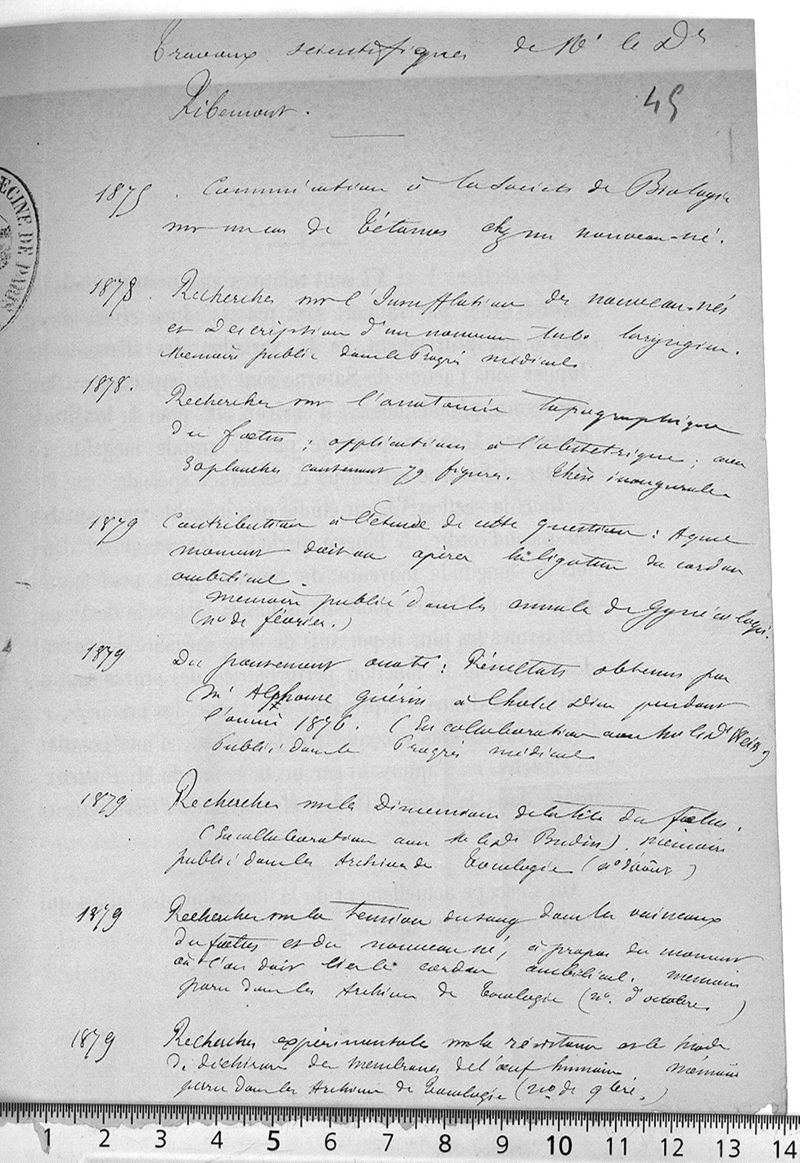 Travaux scientifiques de Mr le Dr
Ribemont.
45
1875. Communication à la Société de Biologie
sur un cas de Tétanos chez un nouveau-né.
1878. Recherches sur l'Insufflation des nouveau-nés
et description d'un nouveau tube laryngien.
Memoire publié dans le Progrès médical.
1878. Recherches sur l'anatomie topographique
du fœtus ; applications à l'obstétrique ; avec
30 planches contenant 79 figures. Thèse inaugurale
1879 Contribution à l'étude de cette question : A quel
moment doit-on opérer la ligature du cordon
ombilical.
Memoire publié dans les annales de Gynécologie.
(no de février.)
1879 Du pansement ouaté : Résultats obtenus par
Mr Alphonse Guérin à l'hotel Dieu pendant
l'année 1876. (En collaboration avec Mr le Dr Weiss)
Publié dans le Progrès médical
1879 Recherches sur les Dimensions de la tête du fœtus.
(En collaboration avec Mr le Dr Budin). Mémoire
publié dans les Archives de Tocologie (no d'août)
1879 Recherches sur la Tension du sang dans les vaisseaux
du fœtus et du nouveau né, à propos du moment
où l'on doit lier le cordon ombilical. Memoire
paru dans les Archives de Tocologie (no. d'octobre)
1879 Recherches expérimentales sur la résistance et le mode
de déchirure des membranes de l'œuf humain Mémoire
paru dans les Archives de Tocologie (no de 9bre.)
ECINE DE PARIS
1 2 3 4 5 6 7 8 9 10 11 12 13 14